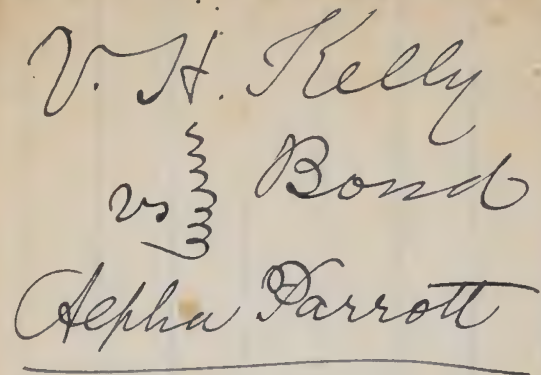 V. H. Kelly
vs Bond
Alpha Parrott